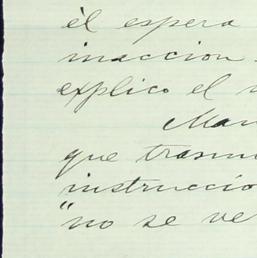 èl espera
inaccion
explico el
Man
que trasm
instrucció
"no se ve